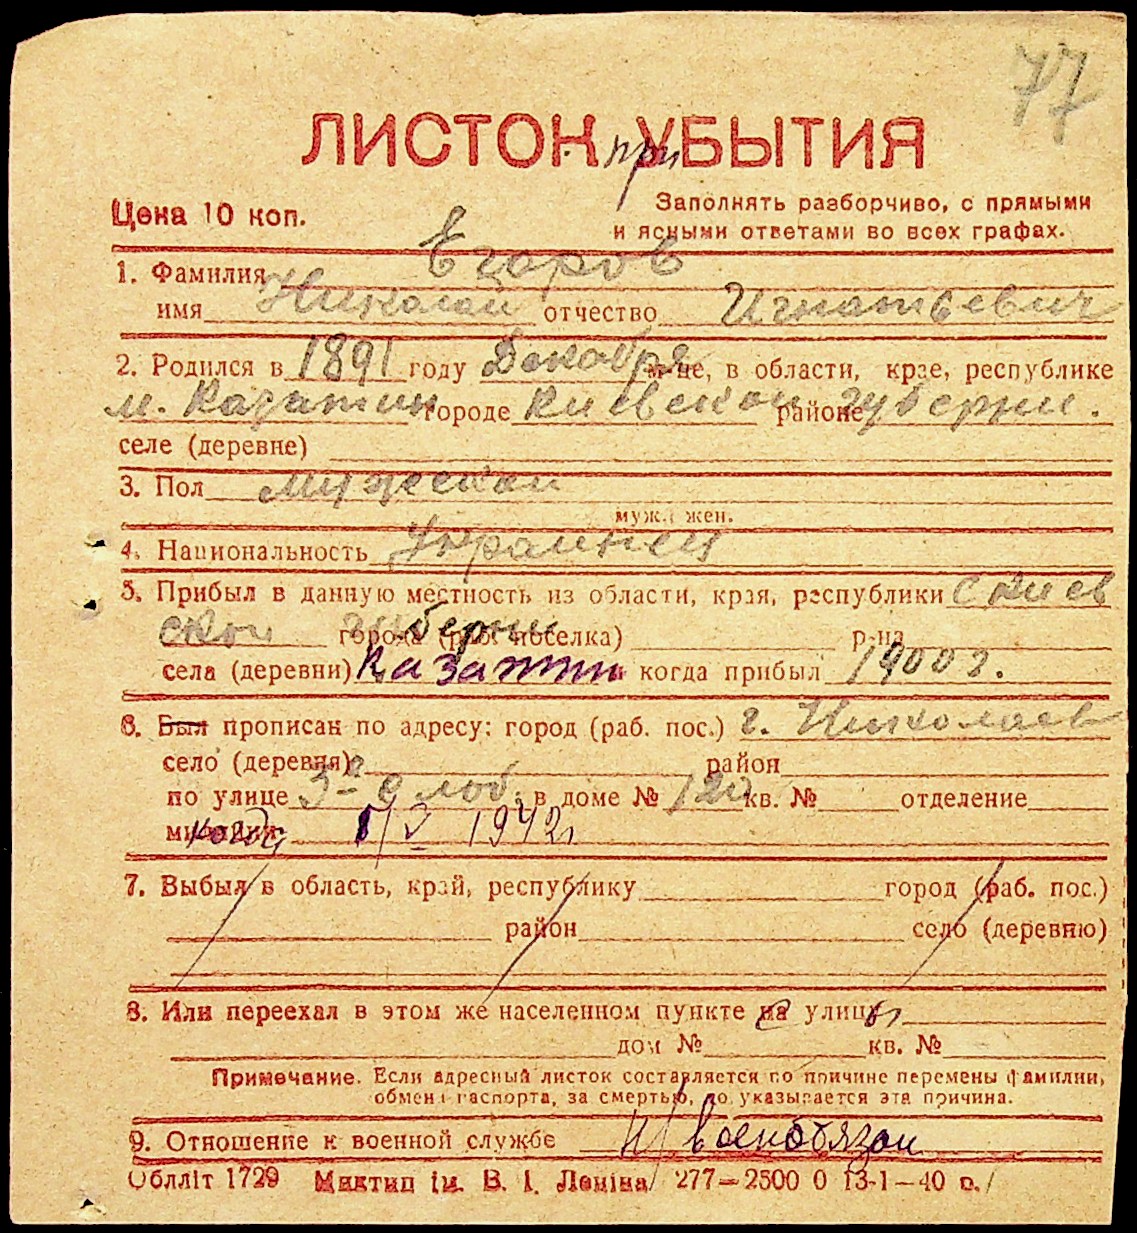 77
ЛИСТОК при УБЫТИЯ
Цена 10 коп.
Заполнять разборчиво, с прямыми
и ясными ответами во всех графах.
1. Фамилия Егоров
имя Николай отчество Игнатьевич
2. Родился в 1891 году Декабря м-це, в области, крае, республике
м. Казатин городе Киевской районе губерни.
селе (деревне)
3. Пол мужской
муж., жен.
4. Национальность Украинец
5. Прибыл в данную местность из области, края, республики с Киев
ской губерни города (раб. поселка) р-на
села (деревни) Казатин когда прибыл 1900 г.
6. Был прописан по адресу: город (раб. пос.) г. Николаев
село (деревня) район
по улице 3-я слоб. в доме № 120 кв. № отделение
милиции когда 1/V 1942
7. Выбыл в область, край, республику город (раб. пос.)
район село (деревню)
8. Или переехал в этом же населенном пункте на с улицы
дом № кв. №
Примечание. Если адресный листок составляется по причине перемены фамилии,
обмена паспорта, за смертью, то указывается эта причина.
9. Отношение к военной службе н/военобязан
Облліт 1729 Миктип ім. В. І. Леніна 277—2500 0 13-1—40 р.